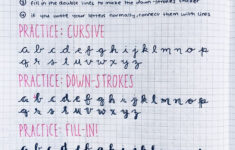 fill in the double lines to make the down-strokes thicker
if you write your letters normally, connect them with lines
PRACTICE: CURSIVE
a b c d e f g h i j k l m n o p
q r s t u v w x y z
PRACTICE: DOWN-STROKES
a b c d e f g h i j k l m n o p
q r s t u v w x y z
PRACTICE: FILL-IN!
a b c d e f g h i j k l m n o p